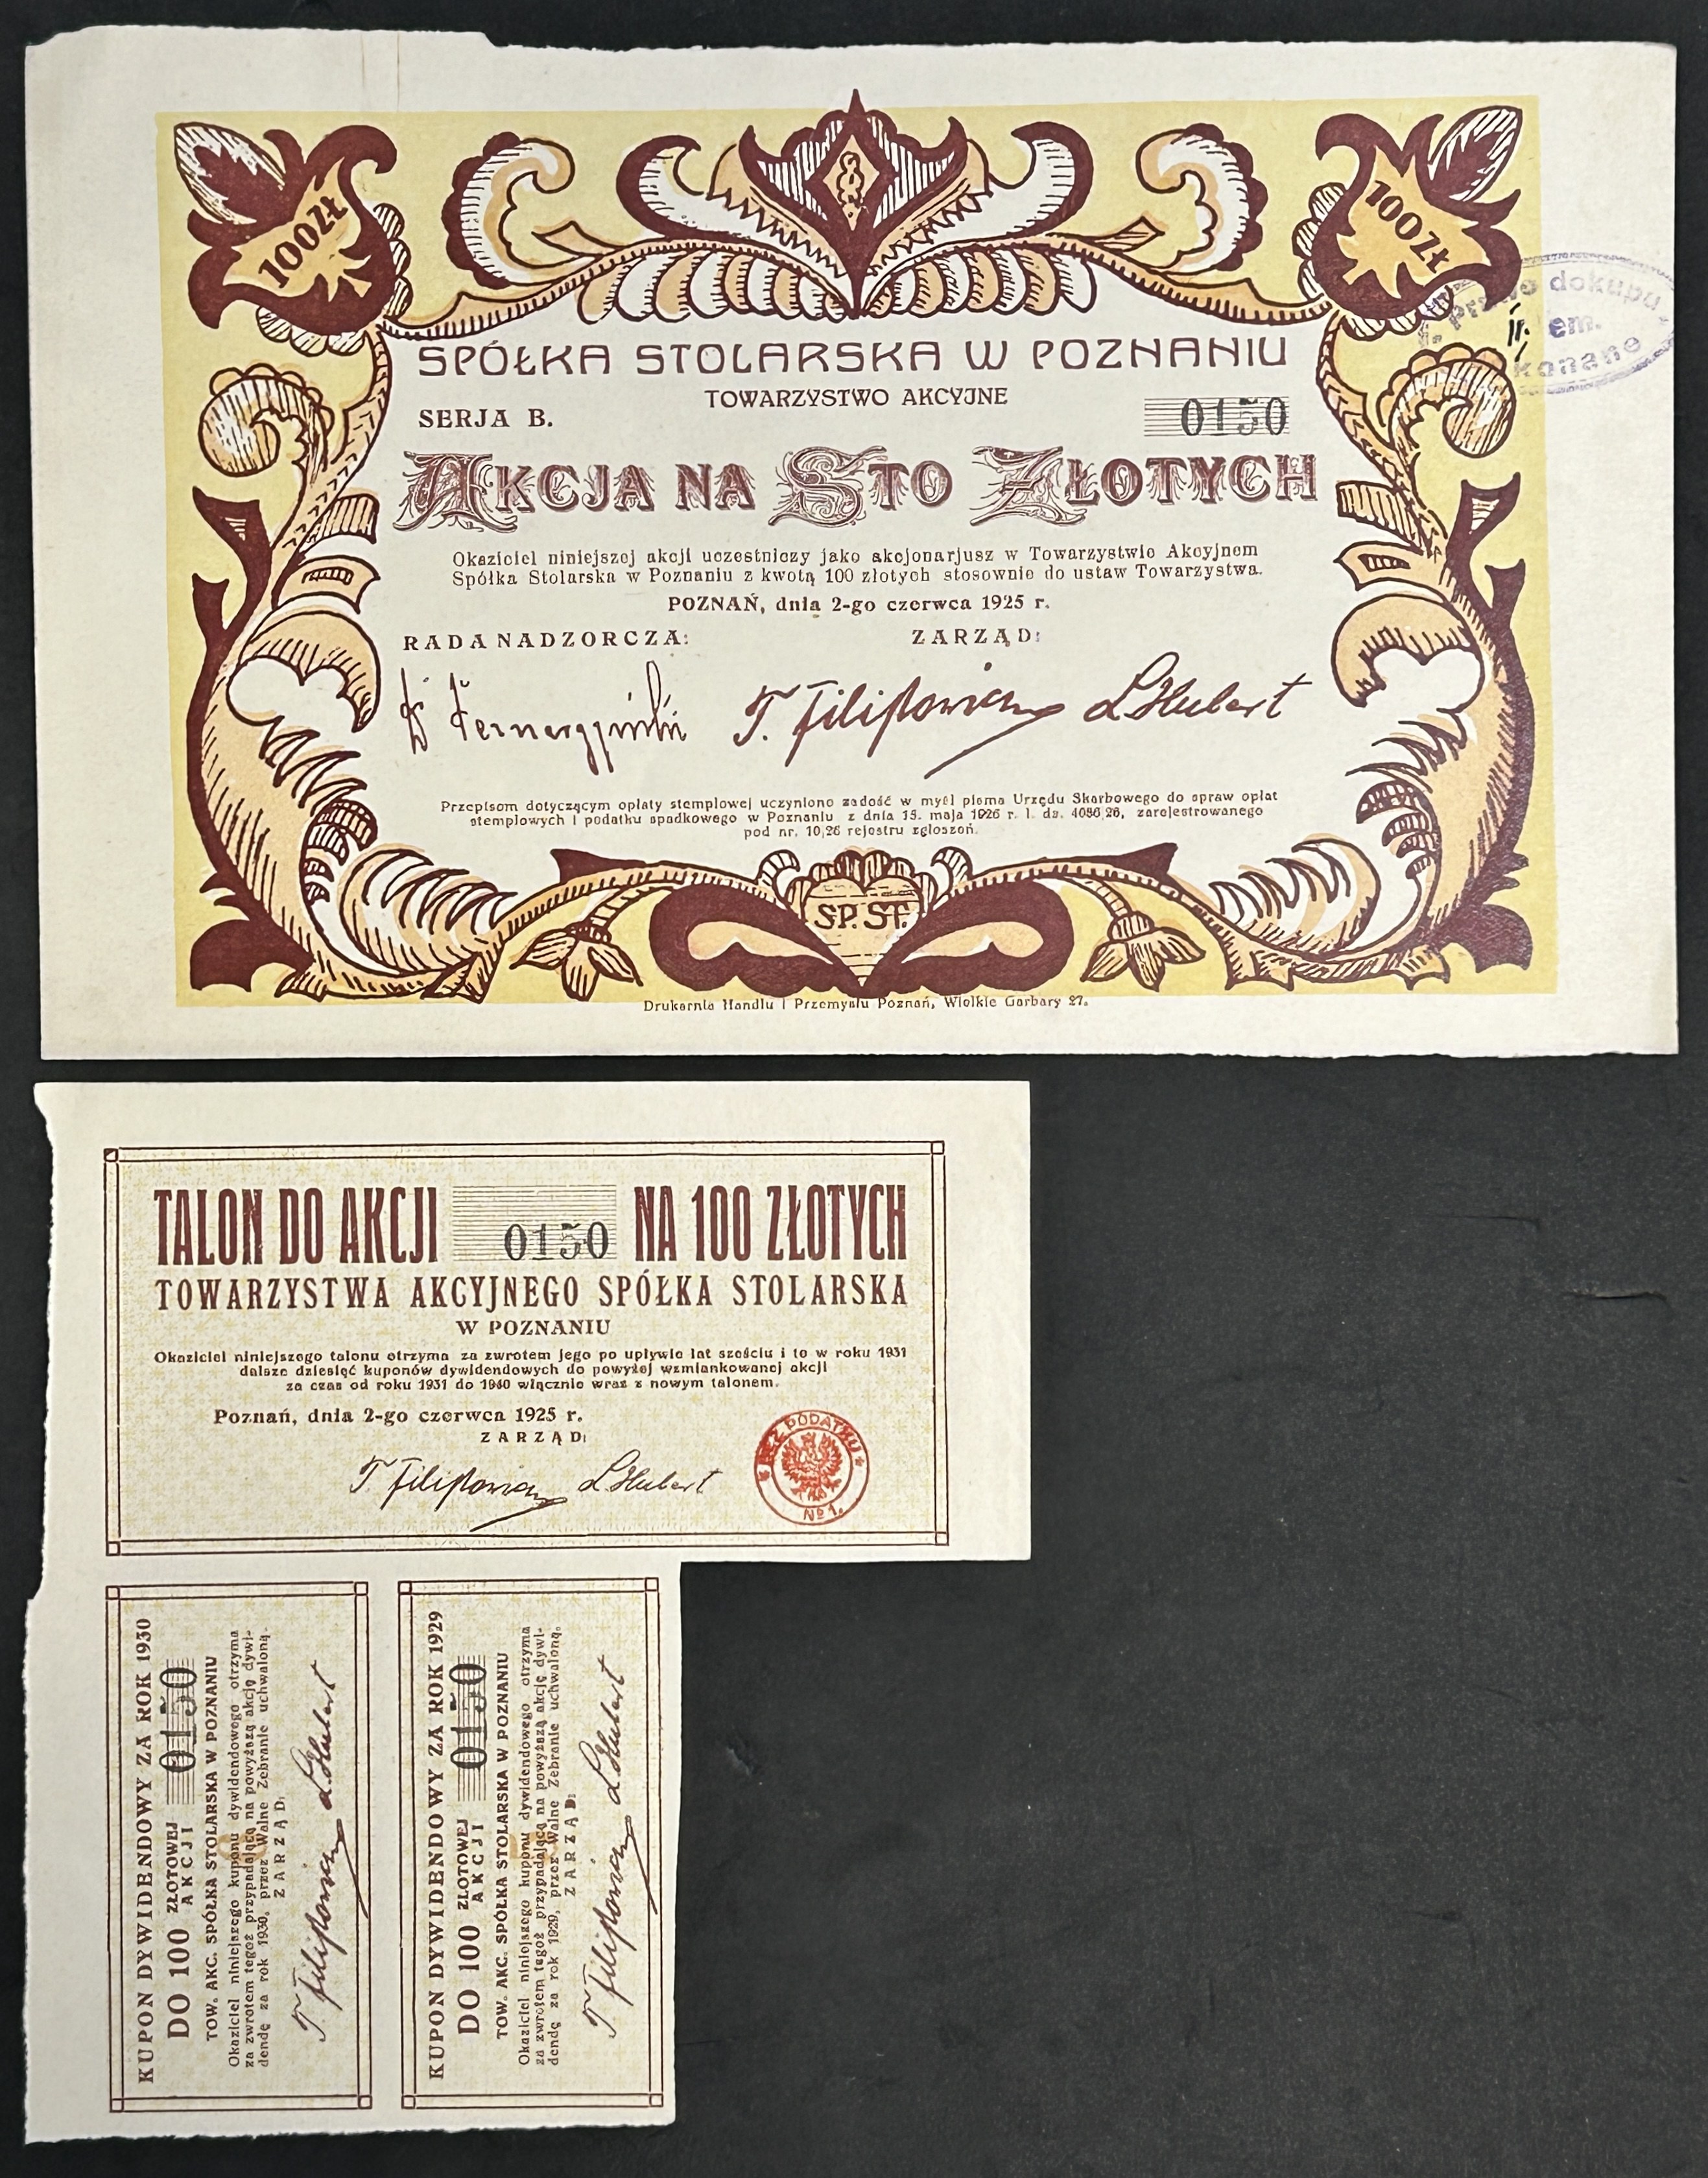 100 ZŁ
100 ZŁ
Prawo dokupu
II. em.
SPÓŁKA STOLARSKA W POZNANIU
TOWARZYSTWO AKCYJNE
SERJA B.
0150
AKCJA NA STO ZŁOTYCH
Okaziciel niniejszej akcji uczestniczy jako akcjonarjusz w Towarzystwie Akcyjnem
Spółka Stolarska w Poznaniu z kwotą 100 złotych stosownie do ustaw Towarzystwa.
POZNAŃ, dnia 2-go czerwca 1925 r.
RADA NADZORCZA: ZARZĄD:
T. Filipowicz L. Hubert
Przepisom dotyczącym opłaty stemplowej uczyniono zadość w myśl pisma Urzędu Skarbowego do spraw opłat
stemplowych i podatku spadkowego w Poznaniu z dnia 15. maja 1926 r. l. dz. 4086/26, zarejestrowanego
pod nr. 10/26 rejestru zgłoszeń.
SP. ST.
Drukarnia Handlu i Przemysłu Poznań, Wielkie Garbary 27.
TALON DO AKCJI 0150 NA 100 ZŁOTYCH
TOWARZYSTWA AKCYJNEGO SPÓŁKA STOLARSKA
W POZNANIU
Okaziciel niniejszego talonu otrzyma za zwrotem jego po upływie lat sześciu i to w roku 1931
dalsze dziesięć kuponów dywidendowych do powyżej wzmiankowanej akcji
za czas od roku 1931 do 1940 włącznie wraz z nowym talonem.
Poznań, dnia 2-go czerwca 1925 r.
ZARZĄD:
T. Filipowicz L. Hubert
BEZ PODATKU
№ 1.
KUPON DYWIDENDOWY ZA ROK 1930
DO 100 ZŁOTOWEJ AKCJI 0150
TOW. AKC. SPÓŁKA STOLARSKA W POZNANIU
Okaziciel niniejszego kuponu dywidendowego otrzyma
za zwrotem tegoż przypadającą na powyższą akcję dywi-
dendę za rok 1930, przez Walne Zebranie uchwaloną.
ZARZĄD:
T. Filipowicz L. Hubert
KUPON DYWIDENDOWY ZA ROK 1929
DO 100 ZŁOTOWEJ AKCJI 0150
TOW. AKC. SPÓŁKA STOLARSKA W POZNANIU
Okaziciel niniejszego kuponu dywidendowego otrzyma
za zwrotem tegoż przypadającą na powyższą akcję dywi-
dendę za rok 1929, przez Walne Zebranie uchwaloną.
ZARZĄD:
T. Filipowicz L. Hubert